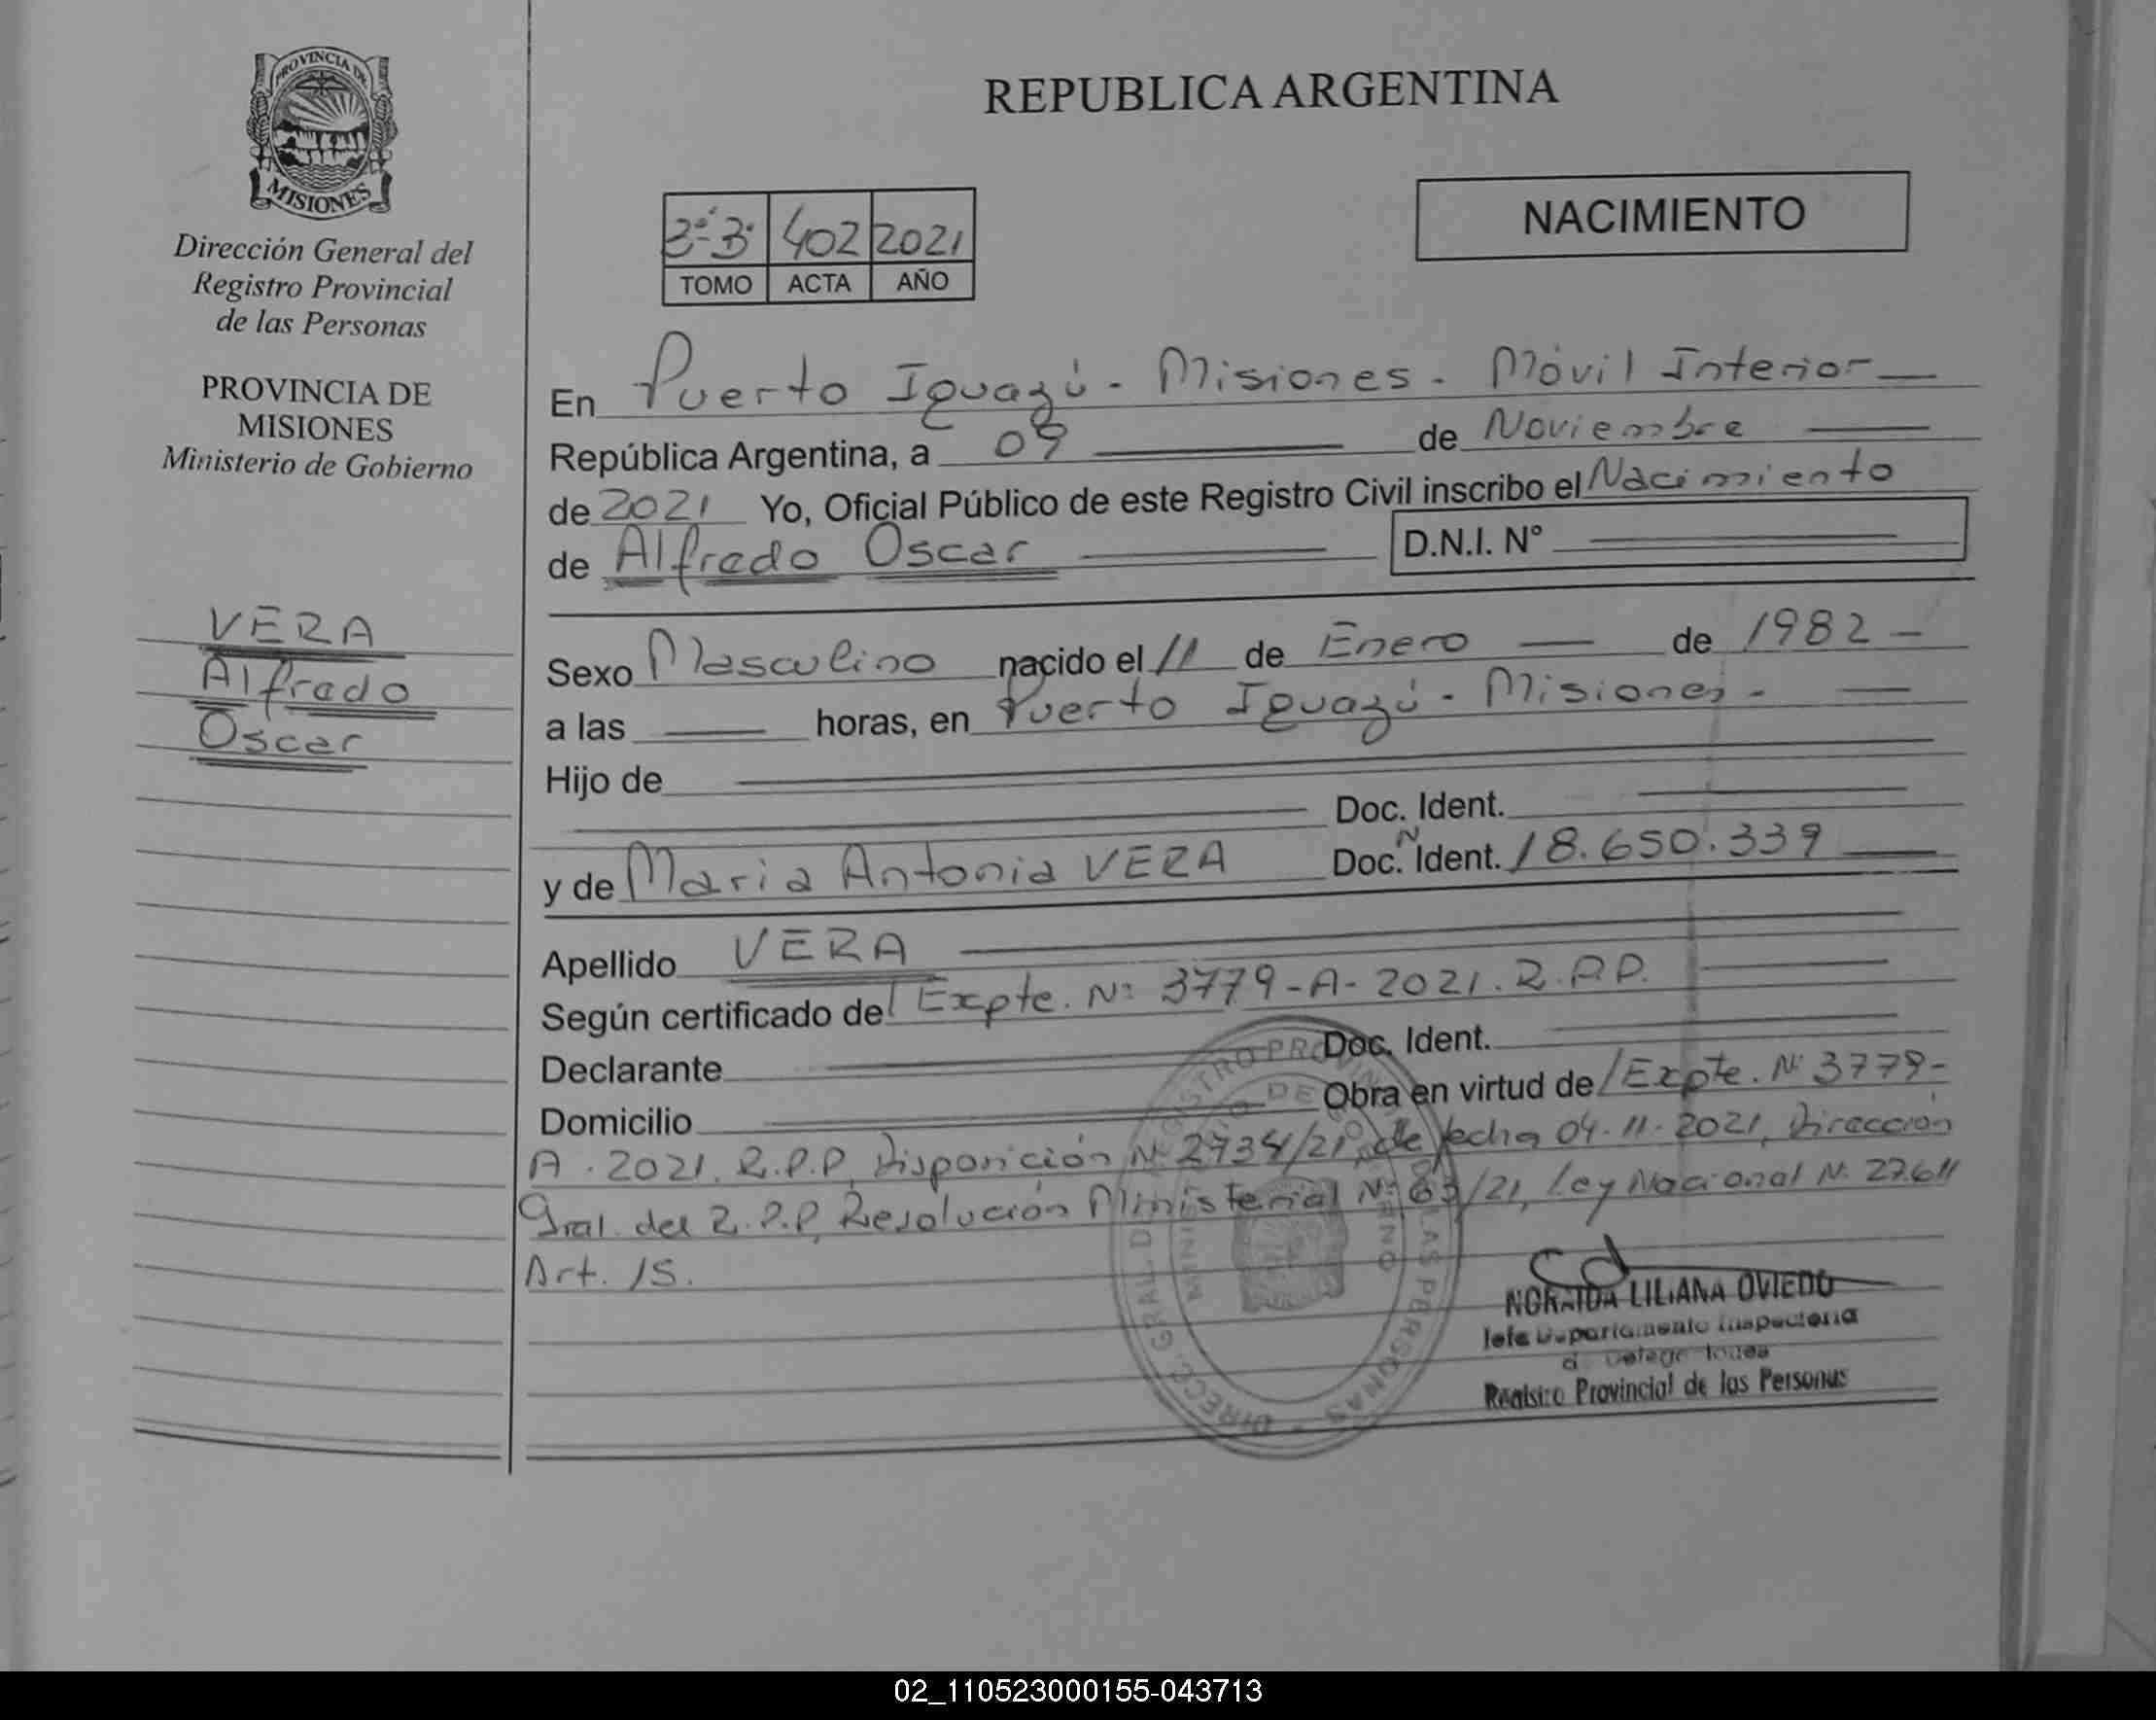 PROVINCIA DE
MISIONES
Dirección General del
Registro Provincial
de las Personas
PROVINCIA DE
MISIONES
Ministerio de Gobierno
VERA
Alfredo
Oscar
REPUBLICA ARGENTINA
402 2021
TOMO ACTA AÑO
NACIMIENTO
En Puerto Iguazú - Misiones - Móvil Interior
República Argentina, a 09 de Noviembre
de 2021 Yo, Oficial Público de este Registro Civil inscribo el Nacimiento
de Alfredo Oscar D.N.I. Nº
Sexo Masculino nacido el 11 de Enero de 1982 -
a las horas, en Puerto Iguazú - Misiones -
Hijo de
Doc. Ident.
y de Maria Antonia VERA Doc. Ident. 18.650.339
Apellido VERA
Según certificado de Expte. Nº 3779-A-2021. R.P.P.
Declarante Doc. Ident.
Domicilio Obra en virtud de Expte. Nº 3779-
A-2021. R.P.P, Disposición Nº de fecha 04-11-2021, Dirección
Gral. del R.P.P, Resolución Ministerial Ley Nacional Nº 27.611
Art. 15.
LILIANA OVIEDO
Jefe Departamento Inspectoria
Registro Provincial de las Personas
02_110523000155-043713